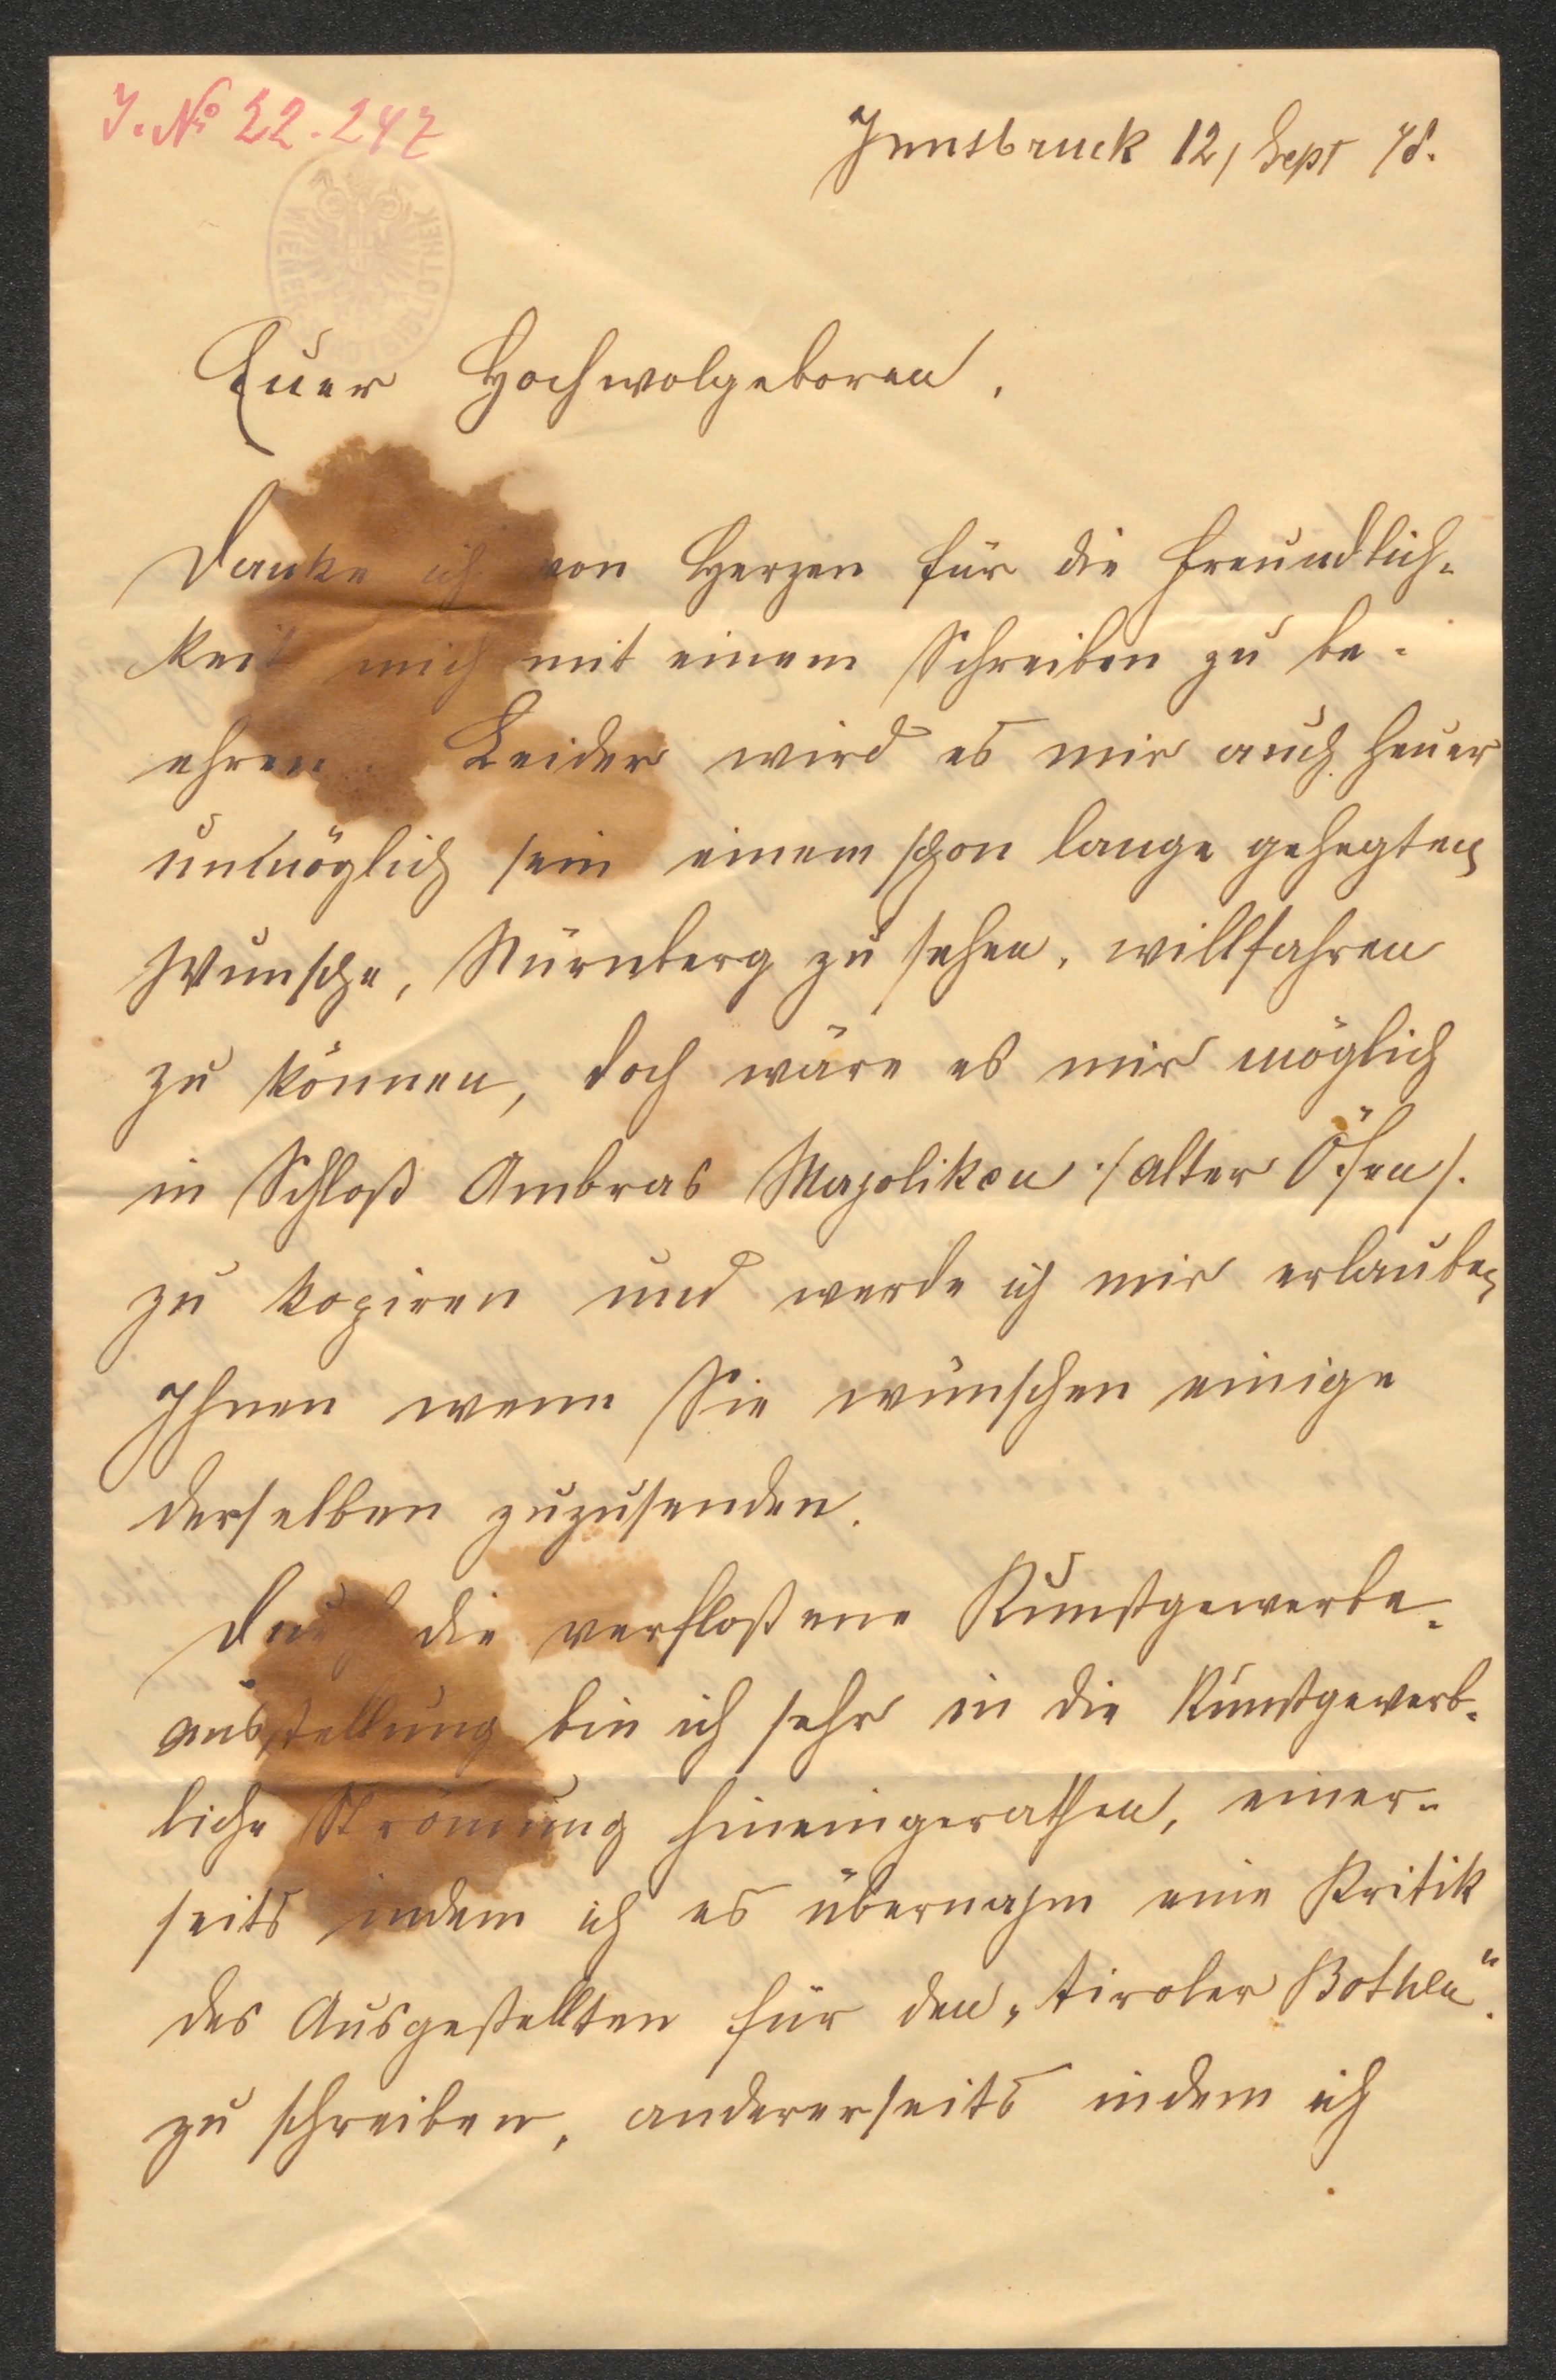 J. № 22.247
Innsbruck 12/ Sept 78.
Euer Hochwolgeboren,
Danke ich von Herzen für die Freundlich-
keit mich mit einem Schreiben zu be-
ehren. Leider wird es mir auch heuer
unmöglich sein einem schon lange gehegten
Wunsche, Nürnberg zu sehen, willfahren
zu können, doch wäre es mir möglich
in Schloß Ambras Majoliken /: alter Öfen :/
zu kopiren und werde ich mir erlauben
Ihnen wenn Sie wünschen einige
derselben zuzusenden.
Durch die verfloßene Kunstgewerbe-
ausstellung bin ich sehr in die kunstgewerb-
liche Strömung hineingerathen, einer-
seits indem ich es übernahm eine Kritik
des Ausgestellten für den „Tiroler Bothen“
zu schreiben, andererseits indem ich